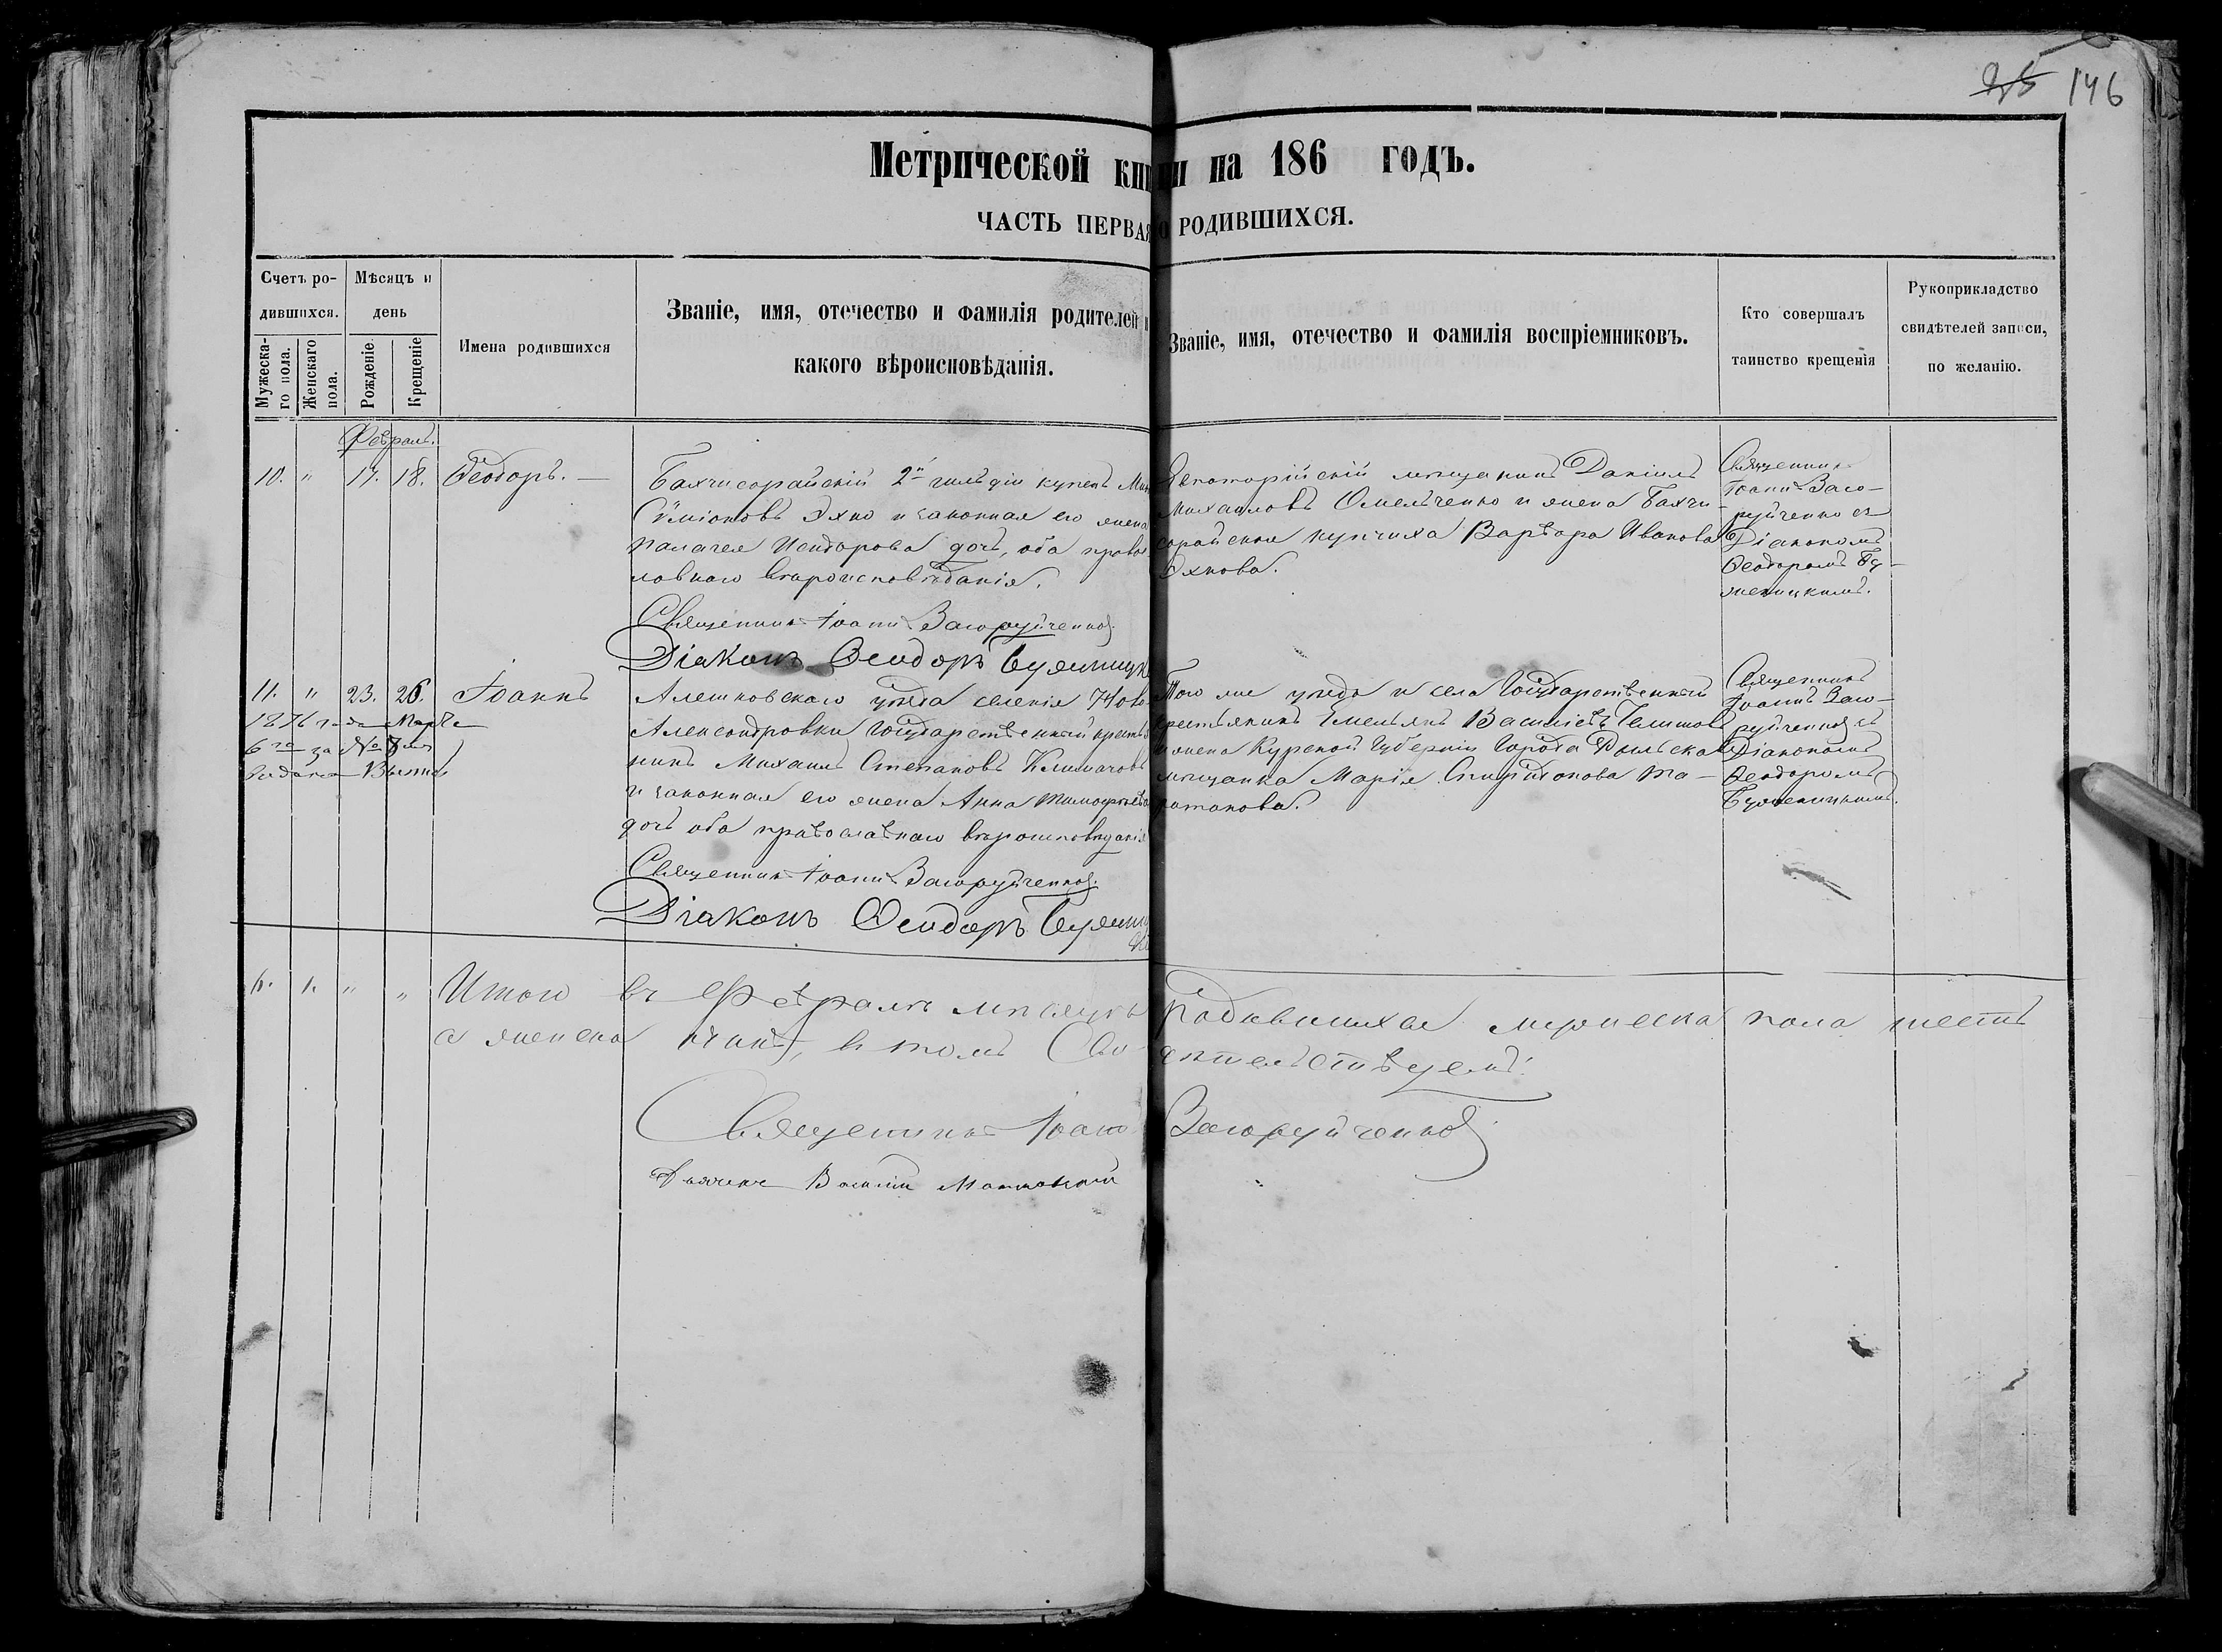 95 146
Метрической книги на 186 годъ.
ЧАСТЬ ПЕРВАЯ О РОДИВШИХСЯ.
Счетъ родившихся.
Мужескаго пола.
Женскаго пола.
Мѣсяцъ и день
Рожденіе.
Крещеніе
Имена родившихся
Званіе, имя, отечество и фамилія родителей и
какого вѣроисповѣданія.
Званіе, имя, отечество и фамилія воспріемниковъ.
Кто совершалъ
таинство крещенія
Рукоприкладство
свидѣтелей записи,
по желанію.
Февраль.
10. " 17. 18. Ѳеодоръ. —
Бахчисарайскій 2й гильдіи купецъ
Сѵміоновъ Эхно и законная его жена
Палагея Исидорова дочь, оба право
лавнаго вѣроисповѣданія.
Священникъ Іоаннъ Загоруйченко
Діаконъ Ѳеодоръ
Евпаторійскій мѣщанинъ Даніилъ
Михаиловъ Омельченко и жена Бахчи-
сарайская купчиха Варвара Иванова
Эхнова.
Священникъ
Іоаннъ Заго-
руйченко съ
Діакономъ
Ѳеодоромъ Бу-
женицкимъ.
11. " 23. 26. Іоаннъ
1876 года Марта
6го за № 8мъ
выдана
Алешковскаго уѣзда селенія Ново
Александровки Государственный крестья
нинъ Михаилъ Степановъ Климачовъ
и законная его жена Анна Тимофѣева
дочь оба православнаго вѣроисповѣданія
Священникъ Іоаннъ Загоруйченко.
Діаконъ Ѳеодоръ
Того же уѣзда и села Государственный
крестьянинъ Емельянъ Василіевъ
и жена Курской Губерніи Города Рыльска
мѣщанка Марія Спиридонова Та-
ратанова.
Священникъ
Іоаннъ Заго-
руйченко съ
Діакономъ
Ѳеодоромъ
Буженицкимъ.
6. 1. " " Итого въ Февралѣ мѣсяцѣ родившихся мужеска пола шесть
а женска одна, въ томъ Сви-дѣтельствуемъ:
Священникъ Іоаннъ Загоруйченко
Дьячекъ Василій